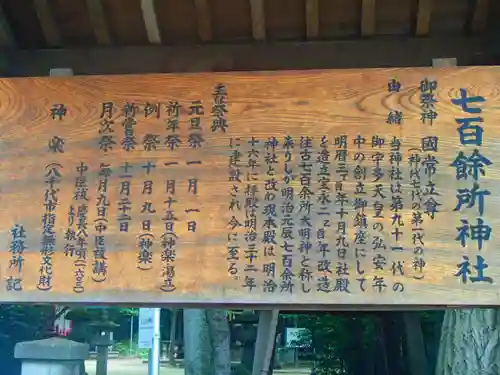 七百餘所神社
御祭神 國常立尊
(神代七代の第一代の神)
由緒 当神社は第九十一代の
御宇多天皇の弘安年
中の創立御鎮座にして
明暦三百年十月九日社殿
を造立宝永二百年改造
往古七百余所大明神と称し
来りしが明治元辰七百余所
神社と改め現本殿は明治
十六年に拝殿は明治三十二年
に建設され今に至る。
主日祭典
元旦祭 一月一日
祈年祭 一月十五日(神楽湯立)
例祭 十月九日(神楽)
新嘗祭 十一月二十二日
月次祭 毎月九日(中臣祓講)
中臣祓 慶応八年頃
より執行
神楽 (八千代市指定無形文化財)
社務所記